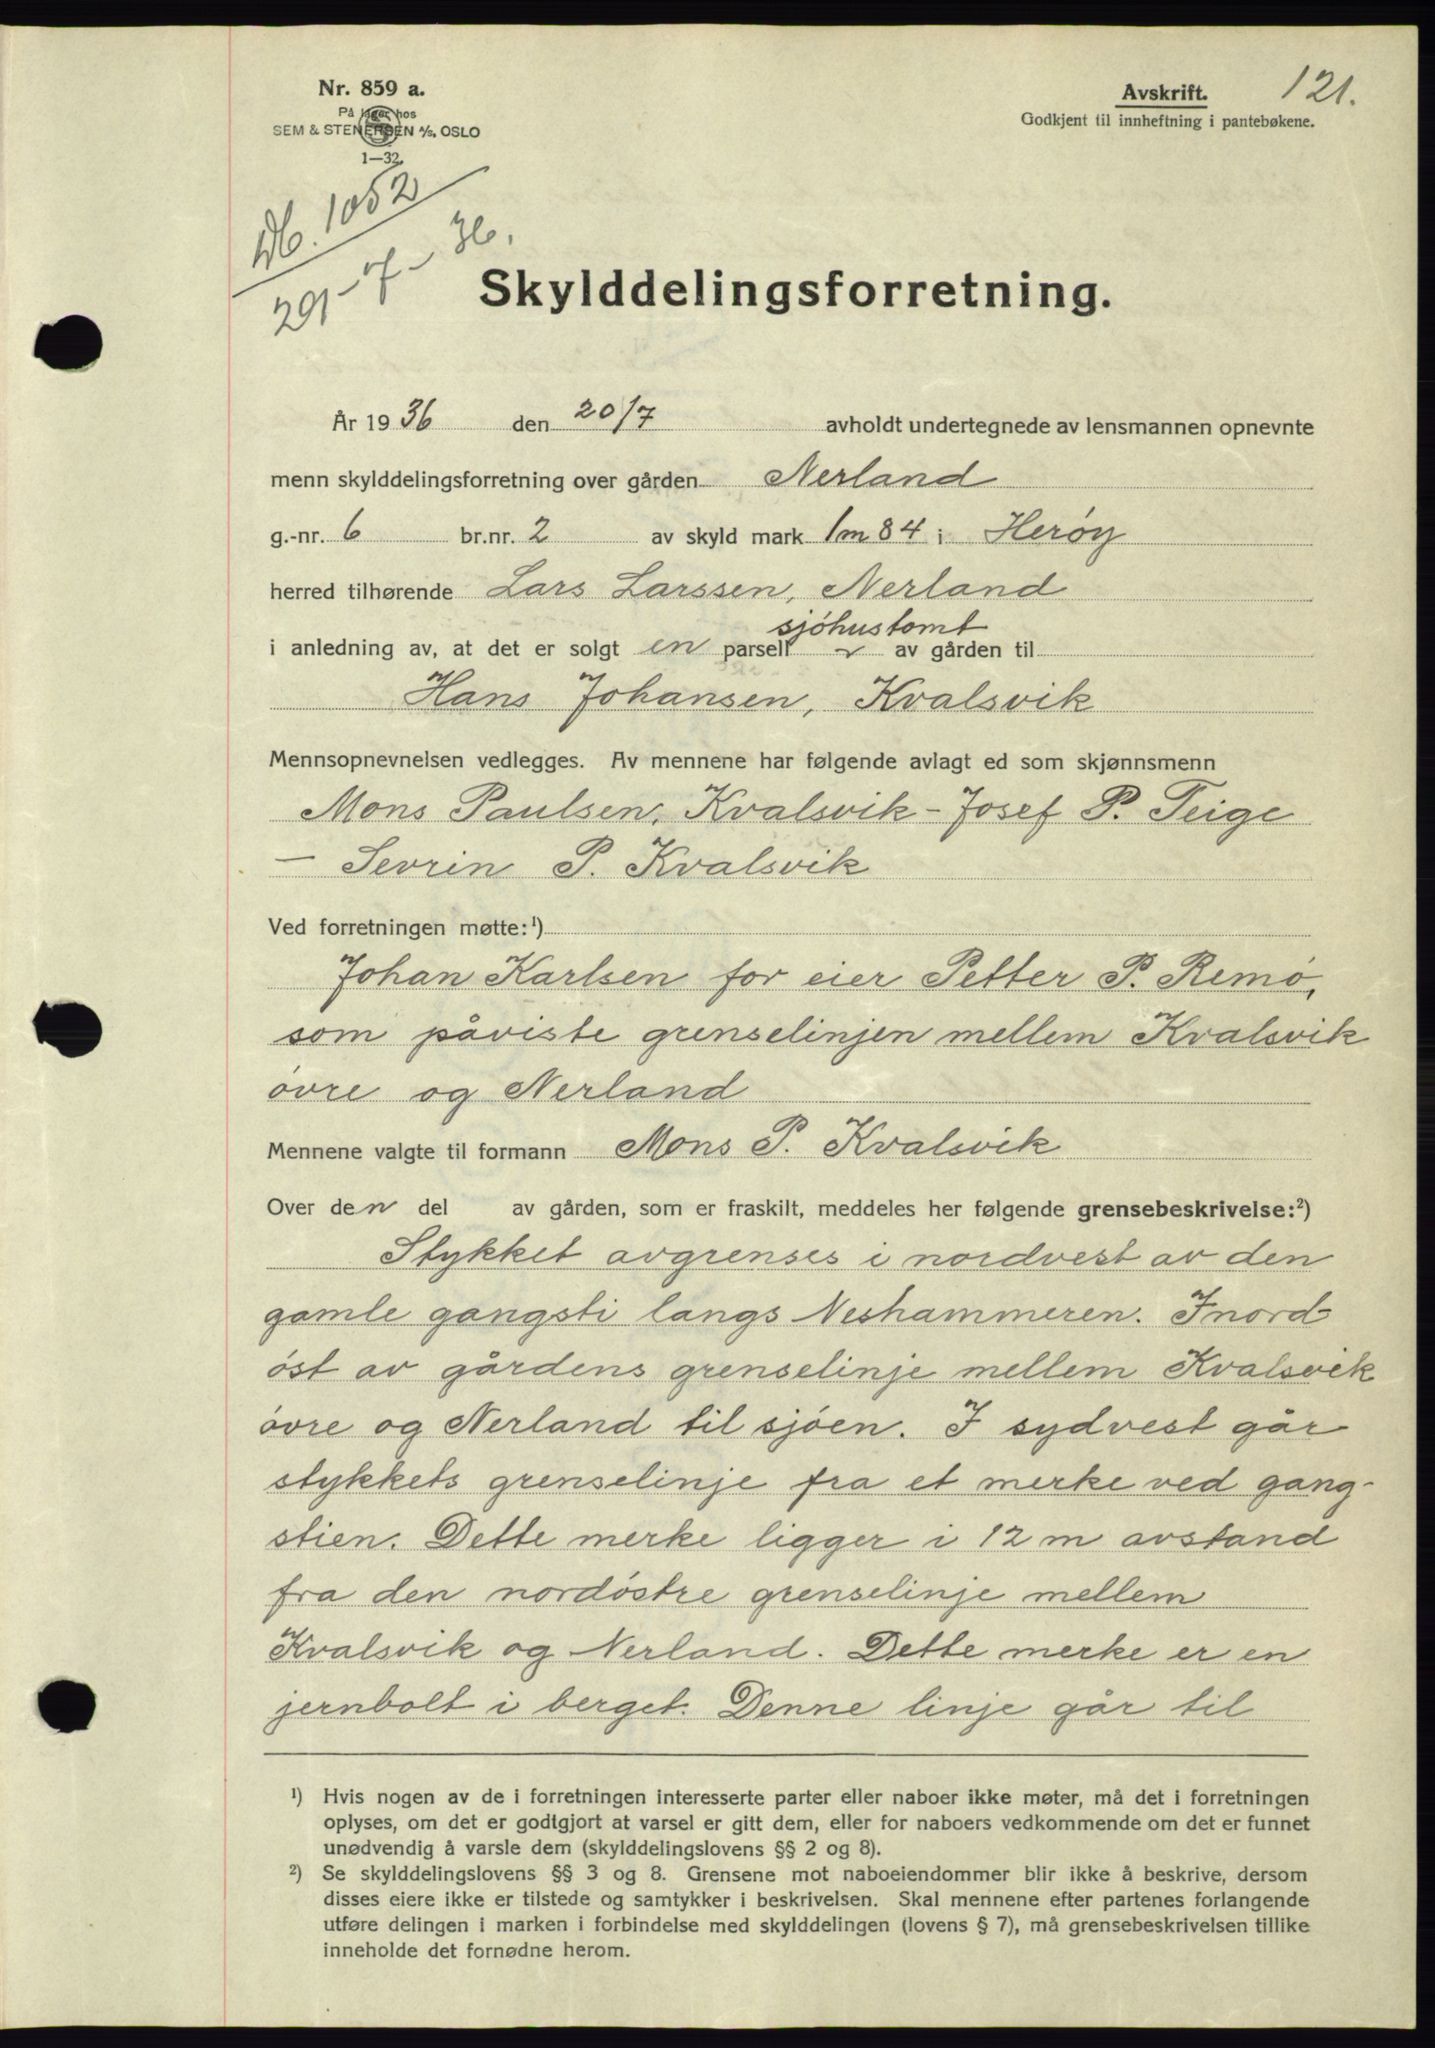 Nr. 859 a.
På lager hos
SEM & STENERSEN A/S, OSLO
1—32.
Avskrift.
Godkjent til innheftning i pantebøkene.
121.
Db. 1052
29-7-36.
Skylddelingsforretning.
År 1936 den 20/7 avholdt undertegnede av lensmannen opnevnte
menn skylddelingsforretning over gården Nerland
g.-nr. 6 br.nr. 2 av skyld mark 1 m 84 i Herøy
herred tilhørende Lars Larssen, Nerland
sjøhustomt
i anledning av, at det er solgt en parsell av gården til
Hans Johansen, Kvalsvik
Mennsopnevnelsen vedlegges. Av mennene har følgende avlagt ed som skjønnsmenn
Mons Paulsen, Kvalsvik – Josef P. Teige
– Sevrin P. Kvalsvik
Ved forretningen møtte:¹)
Johan Karlsen for eier Petter P. Remø,
som påviste grenselinjen mellem Kvalsvik
øvre og Nerland
Mennene valgte til formann Mons P. Kvalsvik
Over den del av gården, som er fraskilt, meddeles her følgende grensebeskrivelse:²)
Stykket avgrenses i nordvest av den
gamle gangsti langs Neshammeren. I nord-
øst av gårdens grenselinje mellem Kvalsvik
øvre og Nerland til sjøen. I sydvest går
stykkets grenselinje fra et merke ved gang-
stien. Dette merke ligger i 12 m avstand
fra den nordøstre grenselinje mellem
Kvalsvik og Nerland. Dette merke er en
jernbolt i berget. Denne linje går til
¹) Hvis nogen av de i forretningen interesserte parter eller naboer ikke møter, må det i forretningen
oplyses, om det er godtgjort at varsel er gitt dem, eller for naboers vedkommende om det er funnet
unødvendig å varsle dem (skylddelingslovens §§ 2 og 8).
²) Se skylddelingslovens §§ 3 og 8. Grensene mot naboeiendommer blir ikke å beskrive, dersom
disses eiere ikke er tilstede og samtykker i beskrivelsen. Skal mennene efter partenes forlangende
utføre delingen i marken i forbindelse med skylddelingen (lovens § 7), må grensebeskrivelsen tillike
inneholde det fornødne herom.